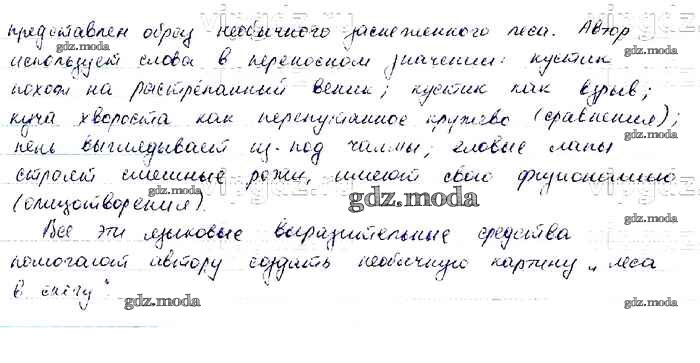 представлен образ необычного заснеженного леса. Автор
использует слова в переносном значении: кустик
похож на растрёпанный веник; кустик как взрыв;
куча хвороста как перепутанное кружево (сравнения);
пень выглядывает из-под чалмы; еловые лапы
строят смешные рожи, имеют свою физиономию
(олицетворения).
Все эти языковые выразительные средства
помогают автору создать необычную картину „леса
в снегу".
gdz.moda
gdz.moda
gdz.moda
gdz.moda
gdz.moda
gdz.moda